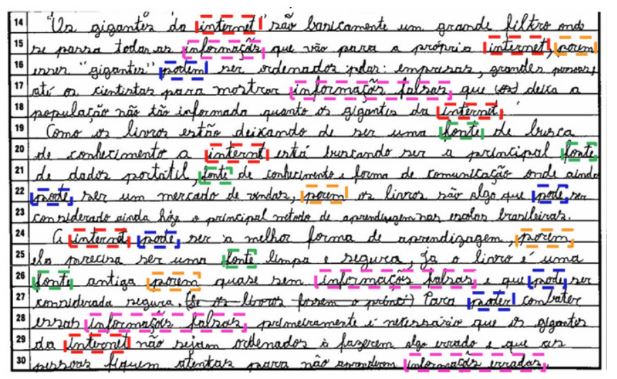 14 "Us gigantes da internet" são basicamente um grande filtro onde
15 se passa todas as informaçõs que vão para a própria internet, porem
16 esses "gigantes" podem ser ordenados pelas: empresas, grandes pessoas,
17 até os cientistas para mostrar informaçõs falsas, que (os) deixa a
18 população não tão informada quanto os gigantes da internet.
19 Como os livros estão deixando de ser uma fonte de busca
20 de conhecimento a internet está buscando ser a principal fonte
21 de dados portatil, fonte de conhecimento e forma de comunicação onde ainda
22 pode ser um mercado de vendas, porem os livros são algo que pode ser
23 considerado ainda hoje o principal metodo de aprendizagem nas escolas brasileiras.
24 A internet pode ser a melhor forma de aprendizagem, porem,
25 ela precisa ser uma fonte limpa e segura, ja o livro é uma
26 fonte antiga porem quase sem informaçõs falsas e que pode ser
27 considerada segura. (Se os livros fossem o princi) Para poder combater
28 essas informaçõs falsas, primeiramente é necessário que os gigantes
29 da internet não sejam ordenados à fazerem algo errado e que as
30 pessoas fiquem atentas para não aprenderem informaçõs erradas.